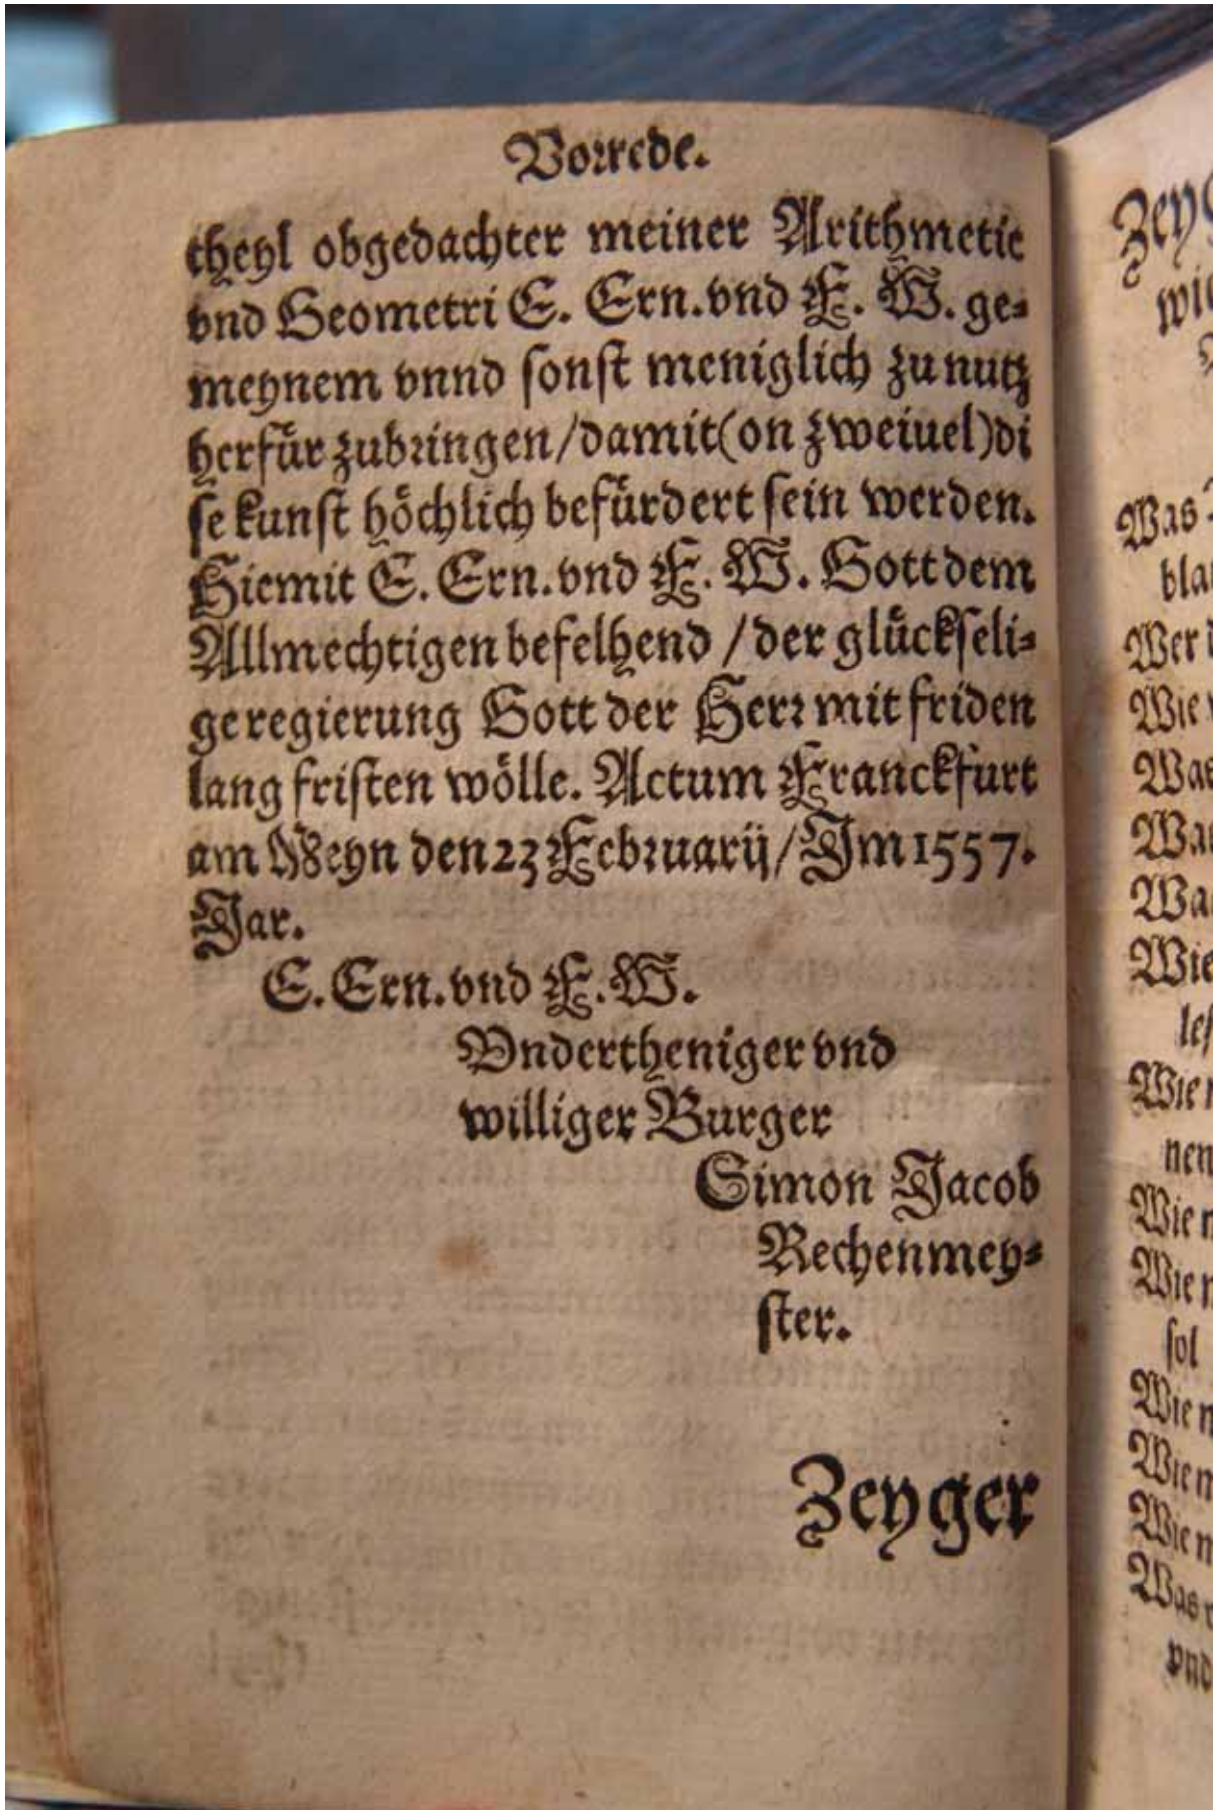 Vorrede.
theyl obgedachter meiner Arithmetic
vnd Geometri E. Ern. vnd F. W. ge-
meynem vnnd sonst meniglich zu nutz
herfür zubringen / damit (on zweiuel) di
se kunst höchlich befürdert sein werden.
Hiemit E. Ern. vnd F. W. Gott dem
Allmechtigen befelhend / der glückseli-
ge regierung Gott der Herr mit friden
lang fristen wölle. Actum Franckfurt
am Meyn den 23 Februarij / Im 1557.
Jar.
E. Ern. vnd F. W.
Vndertheniger vnd
williger Burger
Simon Jacob
Rechenmey-
ster.
Zeyger
Zeyg
wie
Was
blat
Wer
Wie
Was
Wa
Wa
Wie
les
Wie
nen
Wie
Wie
sol
Wie
Wie
Wie
Was
vnd